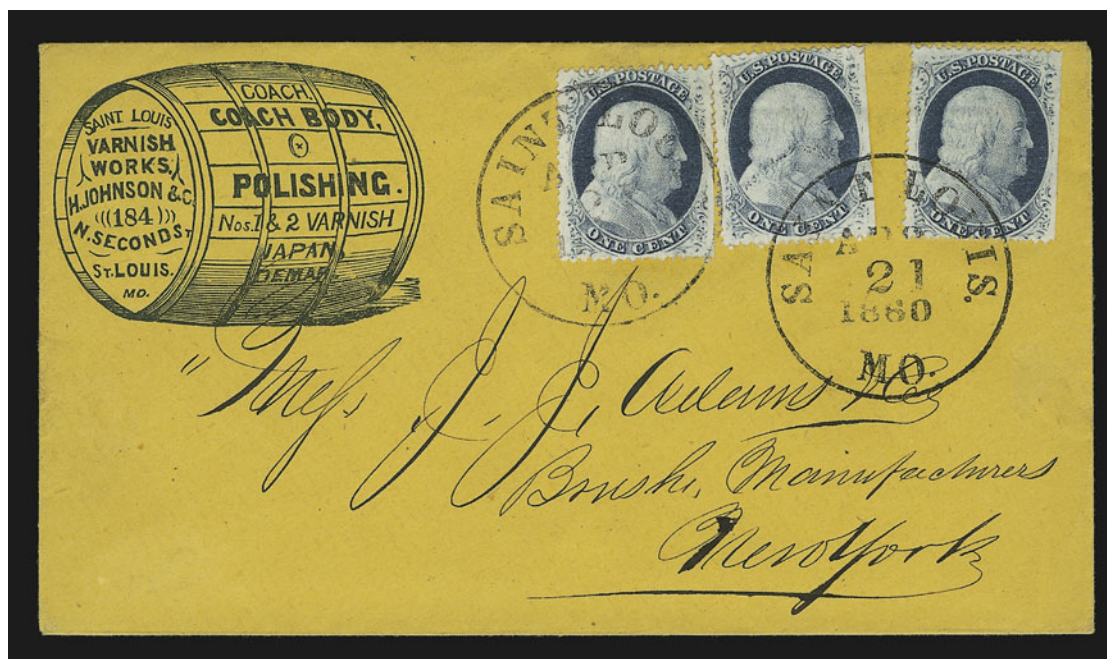 SAINT LOUIS
VARNISH
WORKS,
H. JOHNSON & C.
(((184)))
N. SECOND ST
ST. LOUIS.
MO.
COACH
COACH BODY,
POLISHING.
Nos. 1 & 2 VARNISH
JAPAN,
DEMAR.
U.S. POSTAGE
ONE CENT
U.S. POSTAGE
ONE CENT
U.S. POSTAGE
ONE CENT
SAINT LOU
MO.
SAINT LOUIS.
21
1860
MO.
"Mess J. J. Adams & Co
Brush Manufacturers
New York